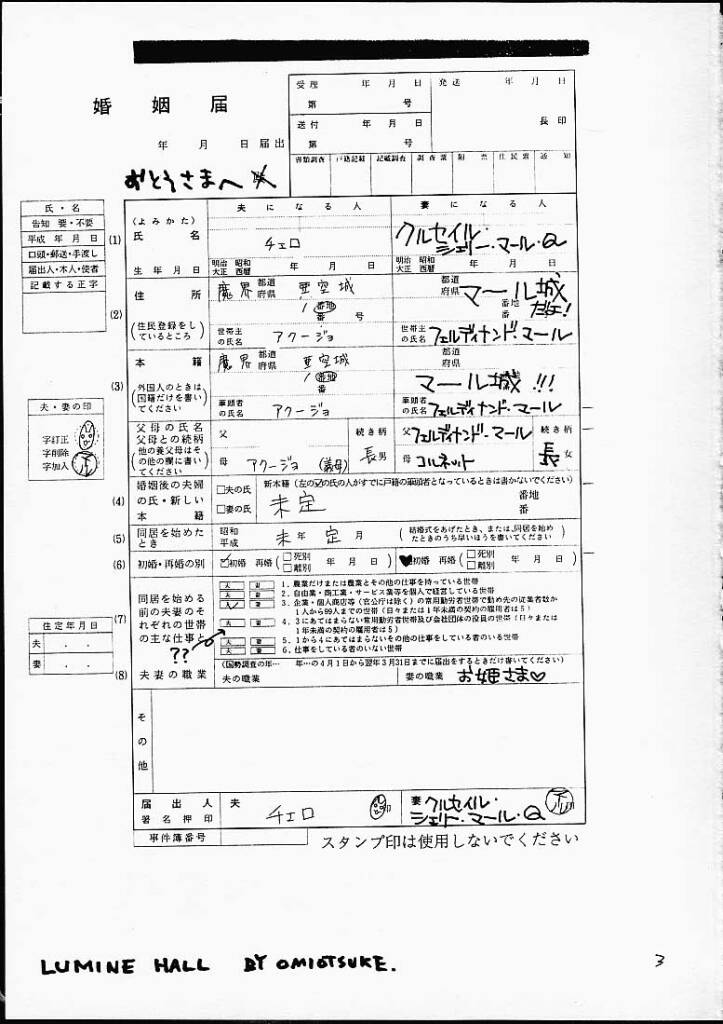 婚姻届
年 月 日 届出
受理 年 月 日
第 号
発送 年 月 日
送付 年 月 日
第 号
長印
書類調査 戸籍記載 記載調査 調査票 附票 住民票 通知
おとうさまへ
氏・名
告知 要・不要
平成 年 月 日
口頭・郵送・手渡し
届出人・本人・使者
記載する正字
夫になる人 妻になる人
(1)
(よみかた)
氏名
チェロ
クルセイル・
シェリー・マール・Q
生年月日
明治 昭和
大正 西暦
年 月 日
明治 昭和
大正 西暦
年 月 日
(2)
住所
(住民登録をしているところ)
魔界 都道府県 亜空城
1 番地
番 号
世帯主の氏名 アクージョ
都道府県 マール城
番地
番
だよ!
世帯主の氏名 フェルディナンド・マール
(3)
本籍
(外国人のときは国籍だけを書いてください)
魔界 都道府県 亜空城
1 番地
番
筆頭者の氏名 アクージョ
都道府県
マール城!!!
筆頭者の氏名 フェルディナンド・マール
夫・妻の印
字訂正
字削除
字加入
父母の氏名
父母との続柄
(他の養父母はその他の欄に書いてください)
父
母 アクージョ (義母)
続き柄
長男
父 フェルディナンド・マール
母 コルネット
続き柄
長女
(4)
婚姻後の夫婦の氏・新しい本籍
□夫の氏
□妻の氏
新本籍(左の☑の氏の人がすでに戸籍の筆頭者となっているときは書かないでください)
未定
番地
番
(5)
同居を始めたとき
昭和
平成
未年 定月
(結婚式をあげたとき、または、同居を始めたときのうち早いほうを書いてください)
(6)
初婚・再婚の別
☑初婚 再婚(□死別 □離別 年 月 日)
♥初婚 再婚(□死別 □離別 年 月 日)
(7)
同居を始める前の夫妻のそれぞれの世帯の主な仕事と
??
夫 妻 1. 農業だけまたは農業とその他の仕事を持っている世帯
夫 妻 2. 自由業・商工業・サービス業等を個人で経営している世帯
夫 妻 3. 企業・個人商店等(官公庁は除く)の常用勤労者世帯で勤め先の従業者数が1人から99人までの世帯(日々または1年未満の契約の雇用者は5)
夫 妻 4. 3にあてはまらない常用勤労者世帯及び会社団体の役員の世帯(日々または1年未満の契約の雇用者は5)
夫 妻 5. 1から4にあてはまらないその他の仕事をしている者のいる世帯
夫 妻 6. 仕事をしている者のいない世帯
住定年月日
夫 ・ ・
妻 ・ ・
(8)
夫妻の職業
(国勢調査の年… 年…の4月1日から翌年3月31日までに届出をするときだけ書いてください)
夫の職業
妻の職業 お姫さま♡
その他
届出人
署名押印
夫 チェロ 印
妻 クルセイル・
シェリー・マール・Q 印
事件簿番号
スタンプ印は使用しないでください
LUMINE HALL BY OMIOTSUKE.
3